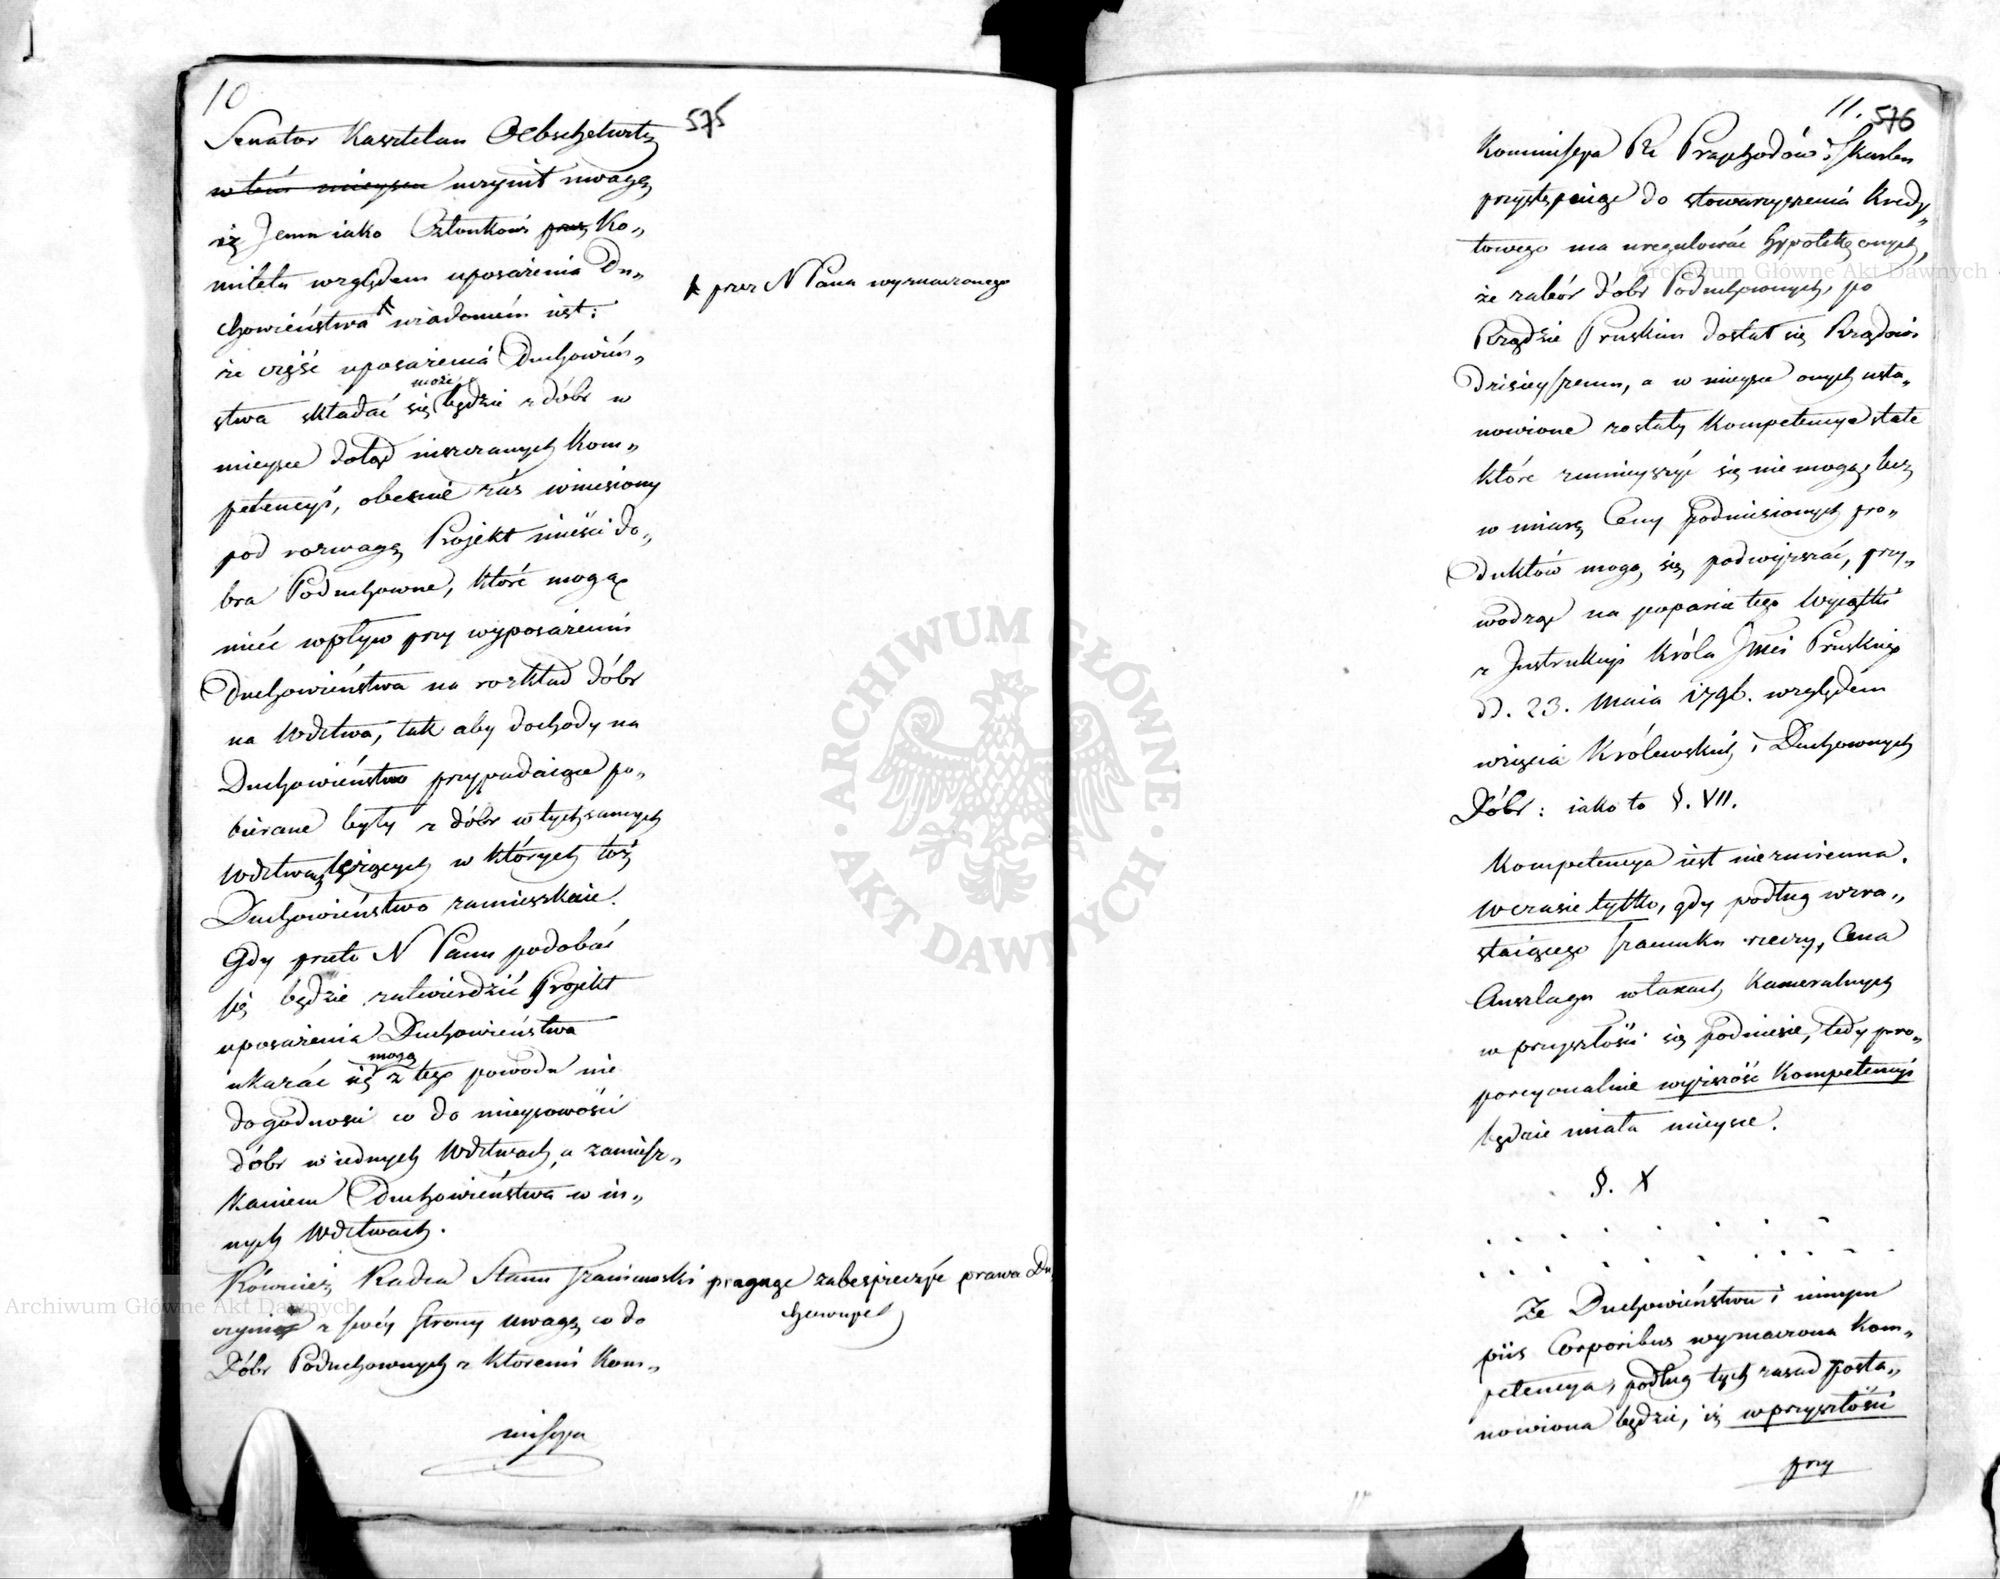 10
575
Senator Kasztelan Oebschelwitz
w tém mieyscu uczynił uwagę
iż Jemu iako Członkowi przez Ko„
mitetu względem uposażenia Du„
chowieństwa wiadomém iest:
przez N Pana wyznaczonego
że część uposażenia Duchowień„
stwa składać się może będzie z dóbr w
mieysce dotąd uiszczanych Kom„
petencyi, obecnie zaś wniesiony
pod rozwagę Projekt mieści do„
bra Poduchowne, które mogą
mieć wpływ przy wyposażeniu
Duchowieństwa na rozkład dóbr
na Wdztwa, tak aby dochody na
Duchowieństwo przypadaiące po„
bierane były z dóbr w tychsamych
Wdztwach leżących w których toż
Duchowieństwo zamieszkuie.
Gdy przeto N Panu podobać
się będzie zatwierdzić Projekt
uposażenia Duchowieństwa
ukazać się mogą z tego powodu nie
dogodności co do mieyscowości
dóbr w iednych Wdztwach, a zamiesz„
kaniem Duchowieństwa w in„
nych Wdztwach.
Również Radca Stanu pragnąc zabespieczyć prawa Du„
chownych
z swéy strony uwagę co do
Dóbr Poduchownych z któremi Kom„
missya
11. 576
Kommissya Rz Przychodów i Skarbu
przystępuiąc do stowarzyszenia Kredy„
towego ma uregulować hypotekę onych,
że zabór dóbr Poduchownych, po
Rządzie Pruskim dostał się Rządowi
Dzisieyszemu, a w mieysce onych usta„
nowione zostały Kompetencye stałe
które zmnieyszyć się nie mogą, lecz
w miarę Ceny podniesionych pro„
duktów mogą się podwyższać, przy„
wodząc na poparcie tego Wyiątki
z Instrukcyi Króla Jmci Pruskiego
dd. 23. Maia 1796. względem
wzięcia Królewskich i Duchownych
Dóbr: iako to §. VII.
Kompetencya iest niezmienna.
W czasie tylko, gdy podług wzra„
staiącego szacunku rzeczy, Cena
Anszlagu w taxach Kameralnych
w przyszłości się podniesie, tedy pro„
porcyonalnie wyższość Kompetencyi
będzie miała mieysce.
§. X
. . . . . . .
. . . . . . . . .
Że Duchowieństwu i innym
piis Corporibus wyznaczona Kom„
petencya, podług tych zasad posta„
nowiona będzie, iż w przyszłości
przy
ARCHIWUM GŁÓWNE
AKT DAWNYCH
Archiwum Główne Akt Dawnych
Archiwum Główne Akt Dawnych